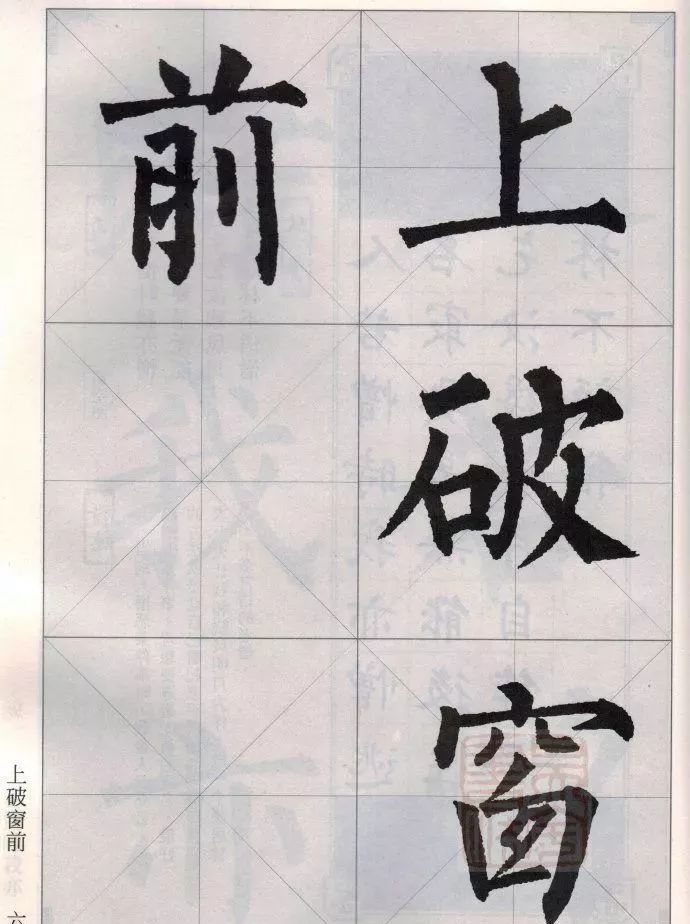 上破窗
前
上破窗前 六